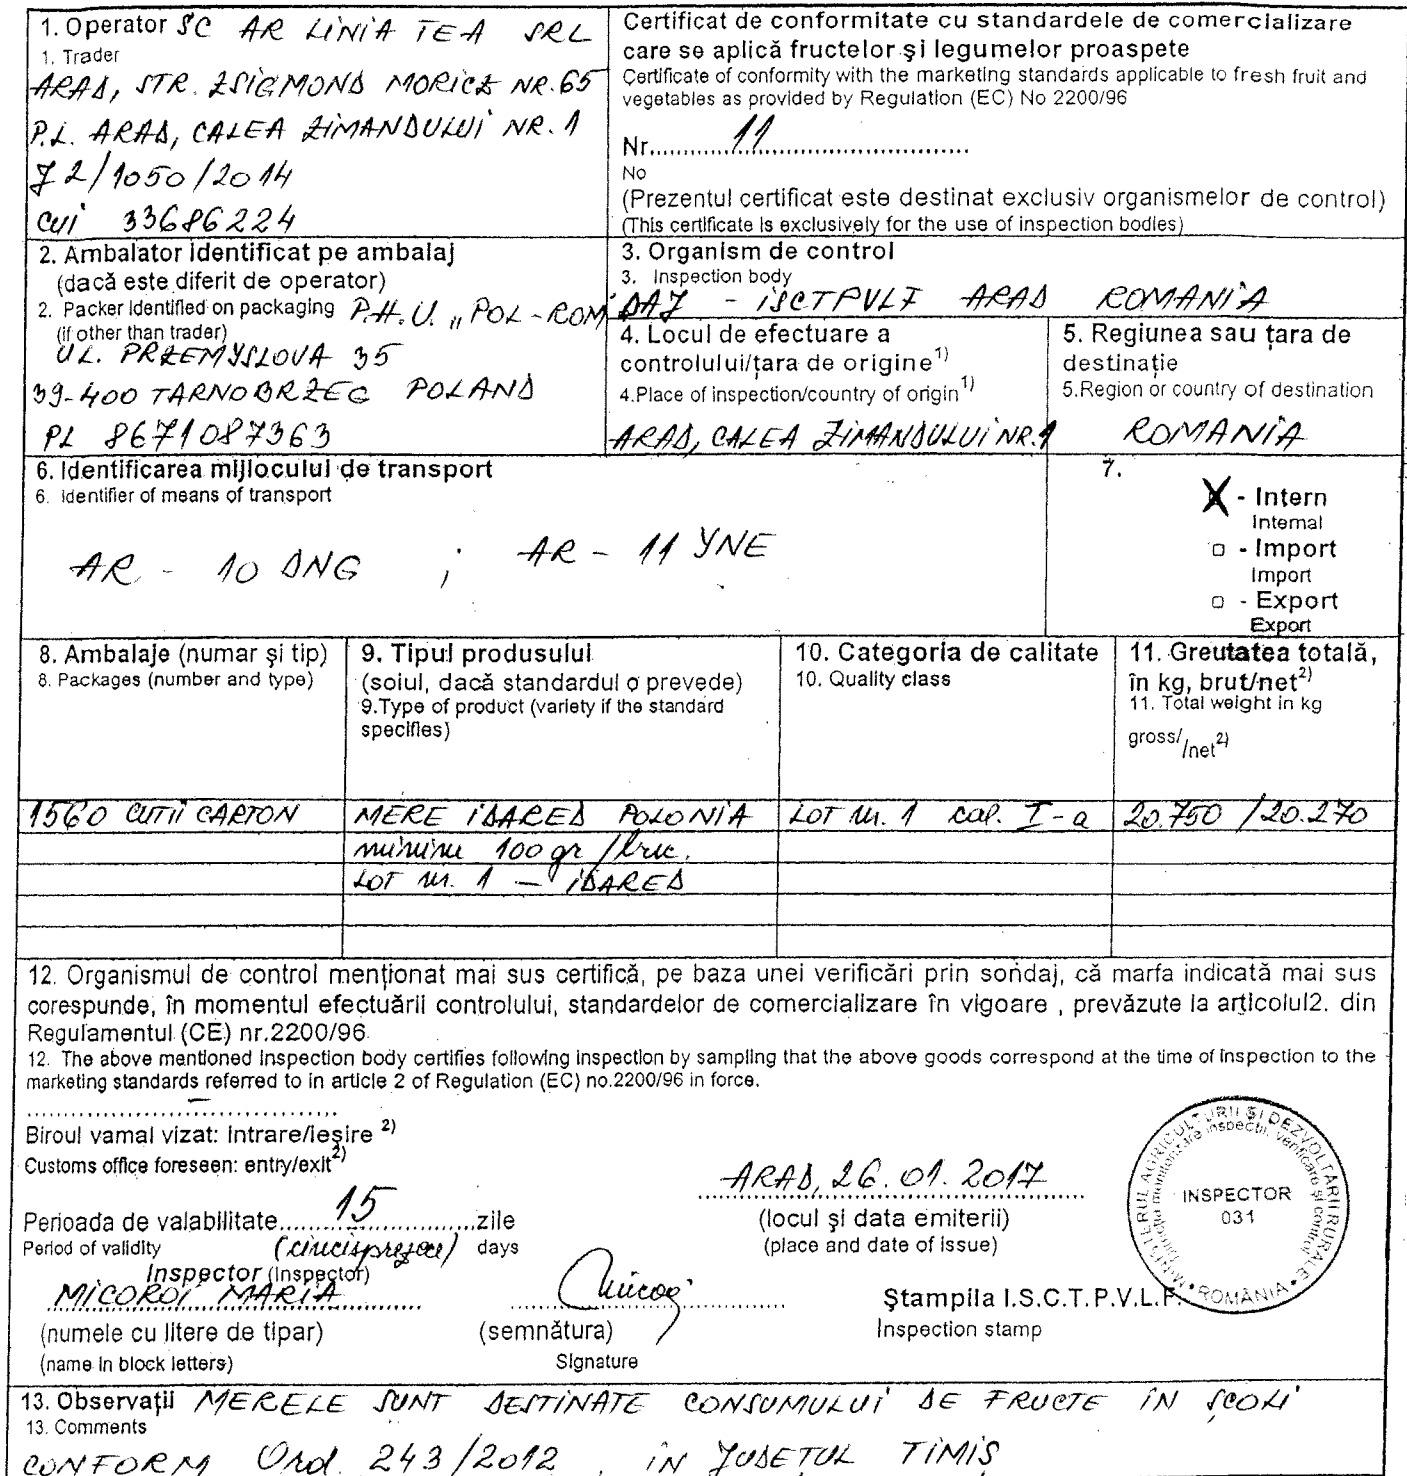 1. Operator SC AR LINIA TEA SRL
1. Trader
ARAD, STR. ZSIGMOND MORICZ NR.65
P.L. ARAD, CALEA ZIMANDULUI NR. 1
J2/1050/2014
CUI 33686224
Certificat de conformitate cu standardele de comercializare
care se aplică fructelor şi legumelor proaspete
Certificate of conformity with the marketing standards applicable to fresh fruit and
vegetables as provided by Regulation (EC) No 2200/96
Nr............11................................
No
(Prezentul certificat este destinat exclusiv organismelor de control)
(This certificate is exclusively for the use of inspection bodies)
2. Ambalator identificat pe ambalaj
(dacă este diferit de operator)
2. Packer identified on packaging P.H.U. „POL-ROM
(if other than trader)
UL. PRZEMYSLOVA 35
39-400 TARNOBRZEG POLAND
PL 8671087363
3. Organism de control
3. Inspection body
DAJ - ISCTPVLF ARAD ROMANIA
4. Locul de efectuare a
controlului/ţara de origine1)
4.Place of inspection/country of origin1)
ARAD, CALEA ZIMANDULUI NR.1
5. Regiunea sau ţara de
destinaţie
5.Region or country of destination
ROMANIA
6. Identificarea mijlocului de transport
6. Identifier of means of transport
AR - 10 DNG ; AR - 11 YNE
7.
X - Intern
Internal
□ - Import
Import
□ - Export
Export
8. Ambalaje (numar şi tip)
8. Packages (number and type)
9. Tipul produsului
(soiul, dacă standardul o prevede)
9.Type of product (variety if the standard
specifies)
10. Categoria de calitate
10. Quality class
11. Greutatea totală,
în kg, brut/net2)
11. Total weight in kg
gross/ /net2)
1560 CUTII CARTON MERE IDARED POLONIA LOT nr. 1 cal. I-a 20.750 /20.270
minim 100 gr /buc.
LOT nr. 1 - IDARED
12. Organismul de control menţionat mai sus certifică, pe baza unei verificări prin sondaj, că marfa indicată mai sus
corespunde, în momentul efectuării controlului, standardelor de comercializare în vigoare , prevăzute la articolul2. din
Regulamentul (CE) nr.2200/96.
12. The above mentioned inspection body certifies following inspection by sampling that the above goods correspond at the time of inspection to the
marketing standards referred to in article 2 of Regulation (EC) no.2200/96 in force.
Biroul vamal vizat: intrare/ieşire 2)
Customs office foreseen: entry/exit2)
ARAD, 26.01.2017
(locul şi data emiterii)
(place and date of issue)
Perioada de valabilitate......15..............zile
Period of validity (cincisprezece) days
Inspector (Inspector)
MICOROI MARIA
(numele cu litere de tipar)
(name in block letters)
(semnătura)
Signature
Ştampila I.S.C.T.P.V.L.F.
Inspection stamp
MINISTERUL AGRICULTURII ŞI DEZVOLTĂRII RURALE • ROMÂNIA •
Direcţia monitorizare inspecţii, verificare şi control
INSPECTOR
031
13. Observaţii MERELE SUNT DESTINATE CONSUMULUI DE FRUCTE IN ŞCOLI
13. Comments
CONFORM Ord. 243/2012, IN JUDEŢUL TIMIŞ